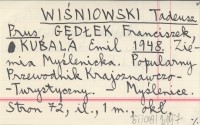 WIŚNIOWSKI Tadeusz
Prus, GĘDŁEK Franciszek,
● KUBALA Emil 1948. Zie-
mia Myślenicka. Popularny
Przewodnik Krajoznawczo-
-Turystyczny. – Myślenice.
Stron 72, il., 1 m. 8kl